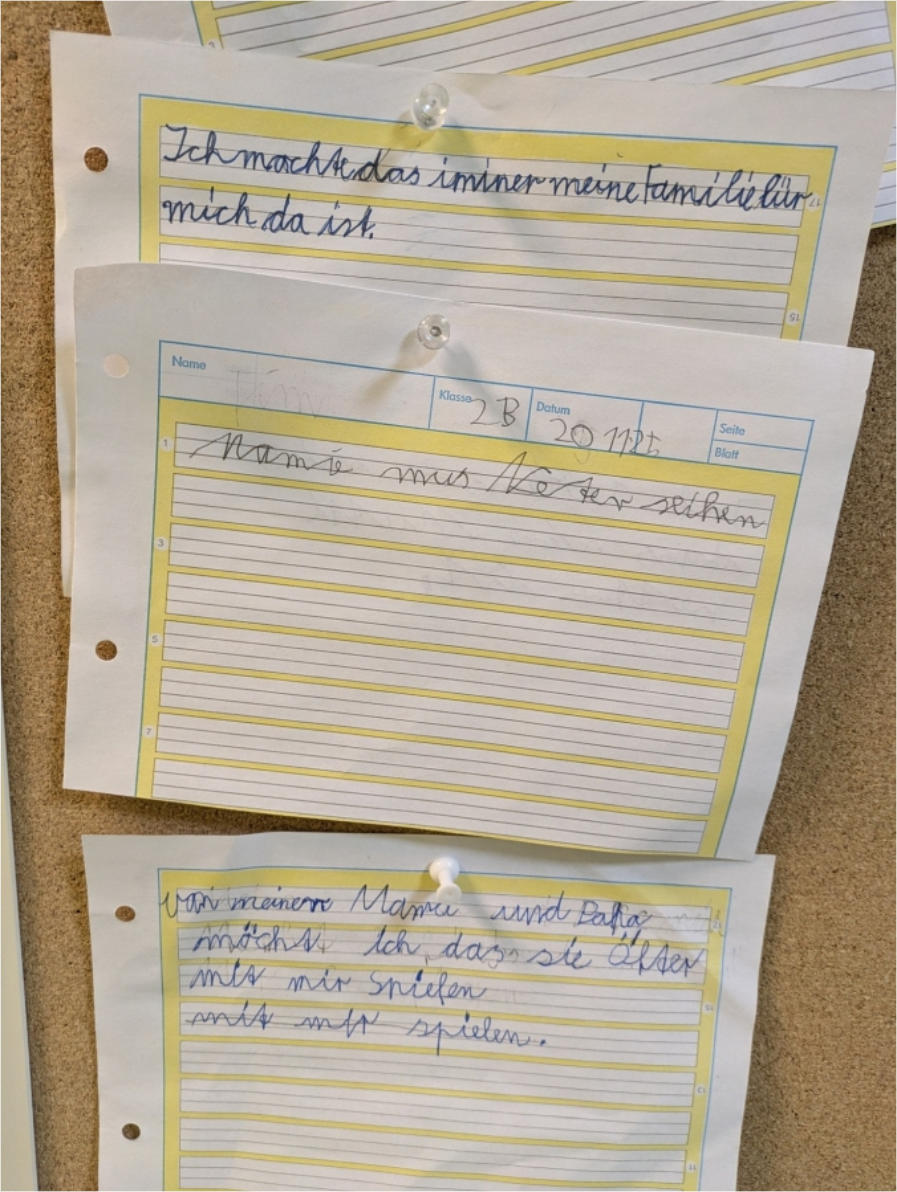 Ich mochte das iminer meine Familie für
mich da ist.
Name
Klasse 2B
Datum 20 11 25
Seite
Blatt
1 Mamie mus Nester seihen
3
5
7
von meinerr Mama und Papa
möcht ich das sie Öfter
mit mir Spielen
mit mir spielen.